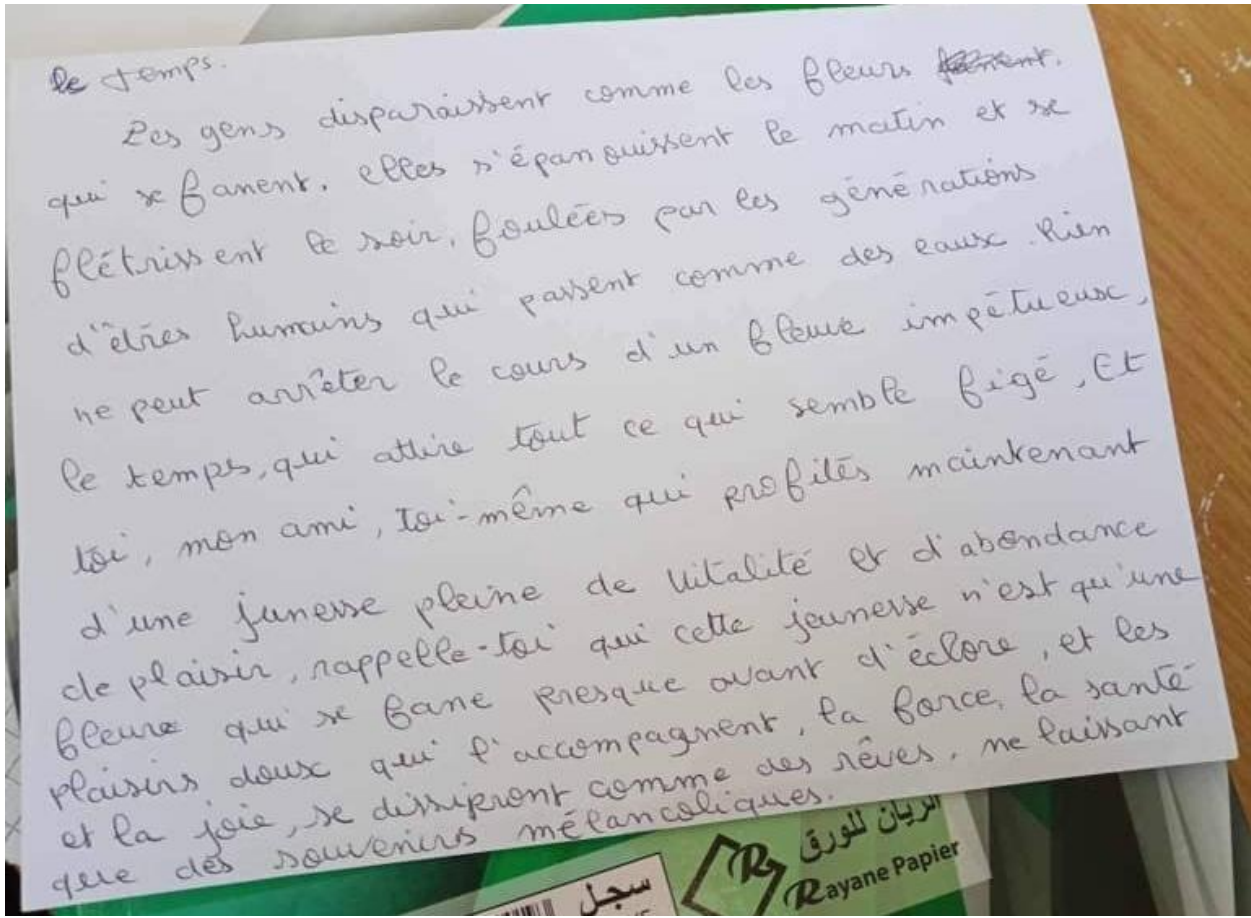 le temps.
Les gens disparaissent comme les fleurs
qui se fanent. elles s'épanouissent le matin et se
flétrissent le soir, foulées par les générations
d'êtres humains qui passent comme des eaux. Rien
ne peut arrêter le cours d'un fleuve impétueux,
le temps, qui attire tout ce qui semble figé, Et
toi, mon ami, toi-même qui profités maintenant
d'une junesse pleine de vitalité et d'abondance
de plaisir, rappelle-toi qui cette jeunesse n'est qu'une
fleure qui se fane presque avant d'éclore, et les
plaisirs doux qui l'accompagnent, la force, la santé
et la joie, se dissiperont comme des rêves, ne laissant
que des souvenirs mélancoliques.
الريان للورق
Rayane Papier
سجل